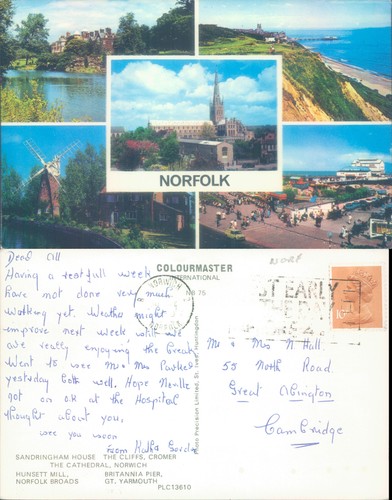 NORFOLK
Dear All
Having a restfull week
have not done very much
walking yet. Weather might
improve next week still we
are really enjoying the break
Went to see Mr & Mrs
yesterday both well. Hope Neville
got on O.K at the Hospital
thought about you.
see you soon
from
SANDRINGHAM HOUSE THE CLIFFS, CROMER
THE CATHEDRAL, NORWICH
HUNSETT MILL, BRITANNIA PIER,
NORFOLK BROADS GT. YARMOUTH
PLC13610
COLOURMASTER
INTERNATIONAL
NO 75
Photo Precision Limited, St. Ives, Huntingdon
NORWICH
ST EARLY
Mr & Mrs N Hall.
55 North Road.
Great Abington
Cambridge